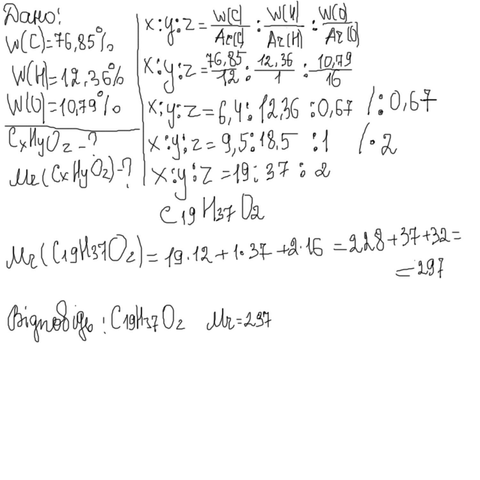 Дано:
W(C)=76,85%
W(H)=12,36%
W(O)=10,79%
CxHyOz-?
Mr(CxHyOz)-?
x:y:z=W(C)/Ar(C):W(H)/Ar(H):W(O)/Ar(O)
x:y:z=76,85/12:12,36/1:10,79/16
x:y:z=6,4:12,36:0,67 /:0,67
x:y:z=9,5:18,5:1 /·2
x:y:z=19:37:2
C19H37O2
Mr(C19H37O2)=19·12+1·37+2·16=228+37+32=
=297
Відповідь: C19H37O2 Mr=297